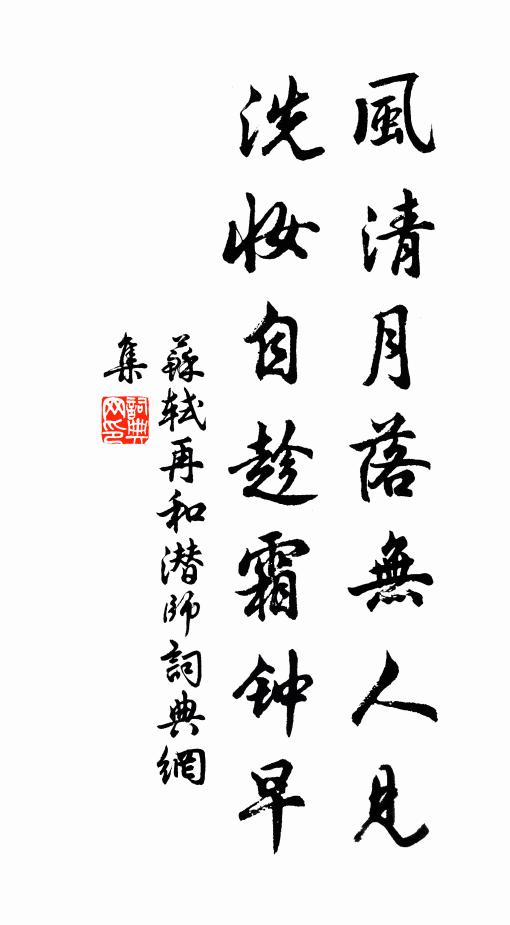 風清月落無人見
洗妝自趁霜钟早
蘇軾再和潜師詞典網
集
詞典網印